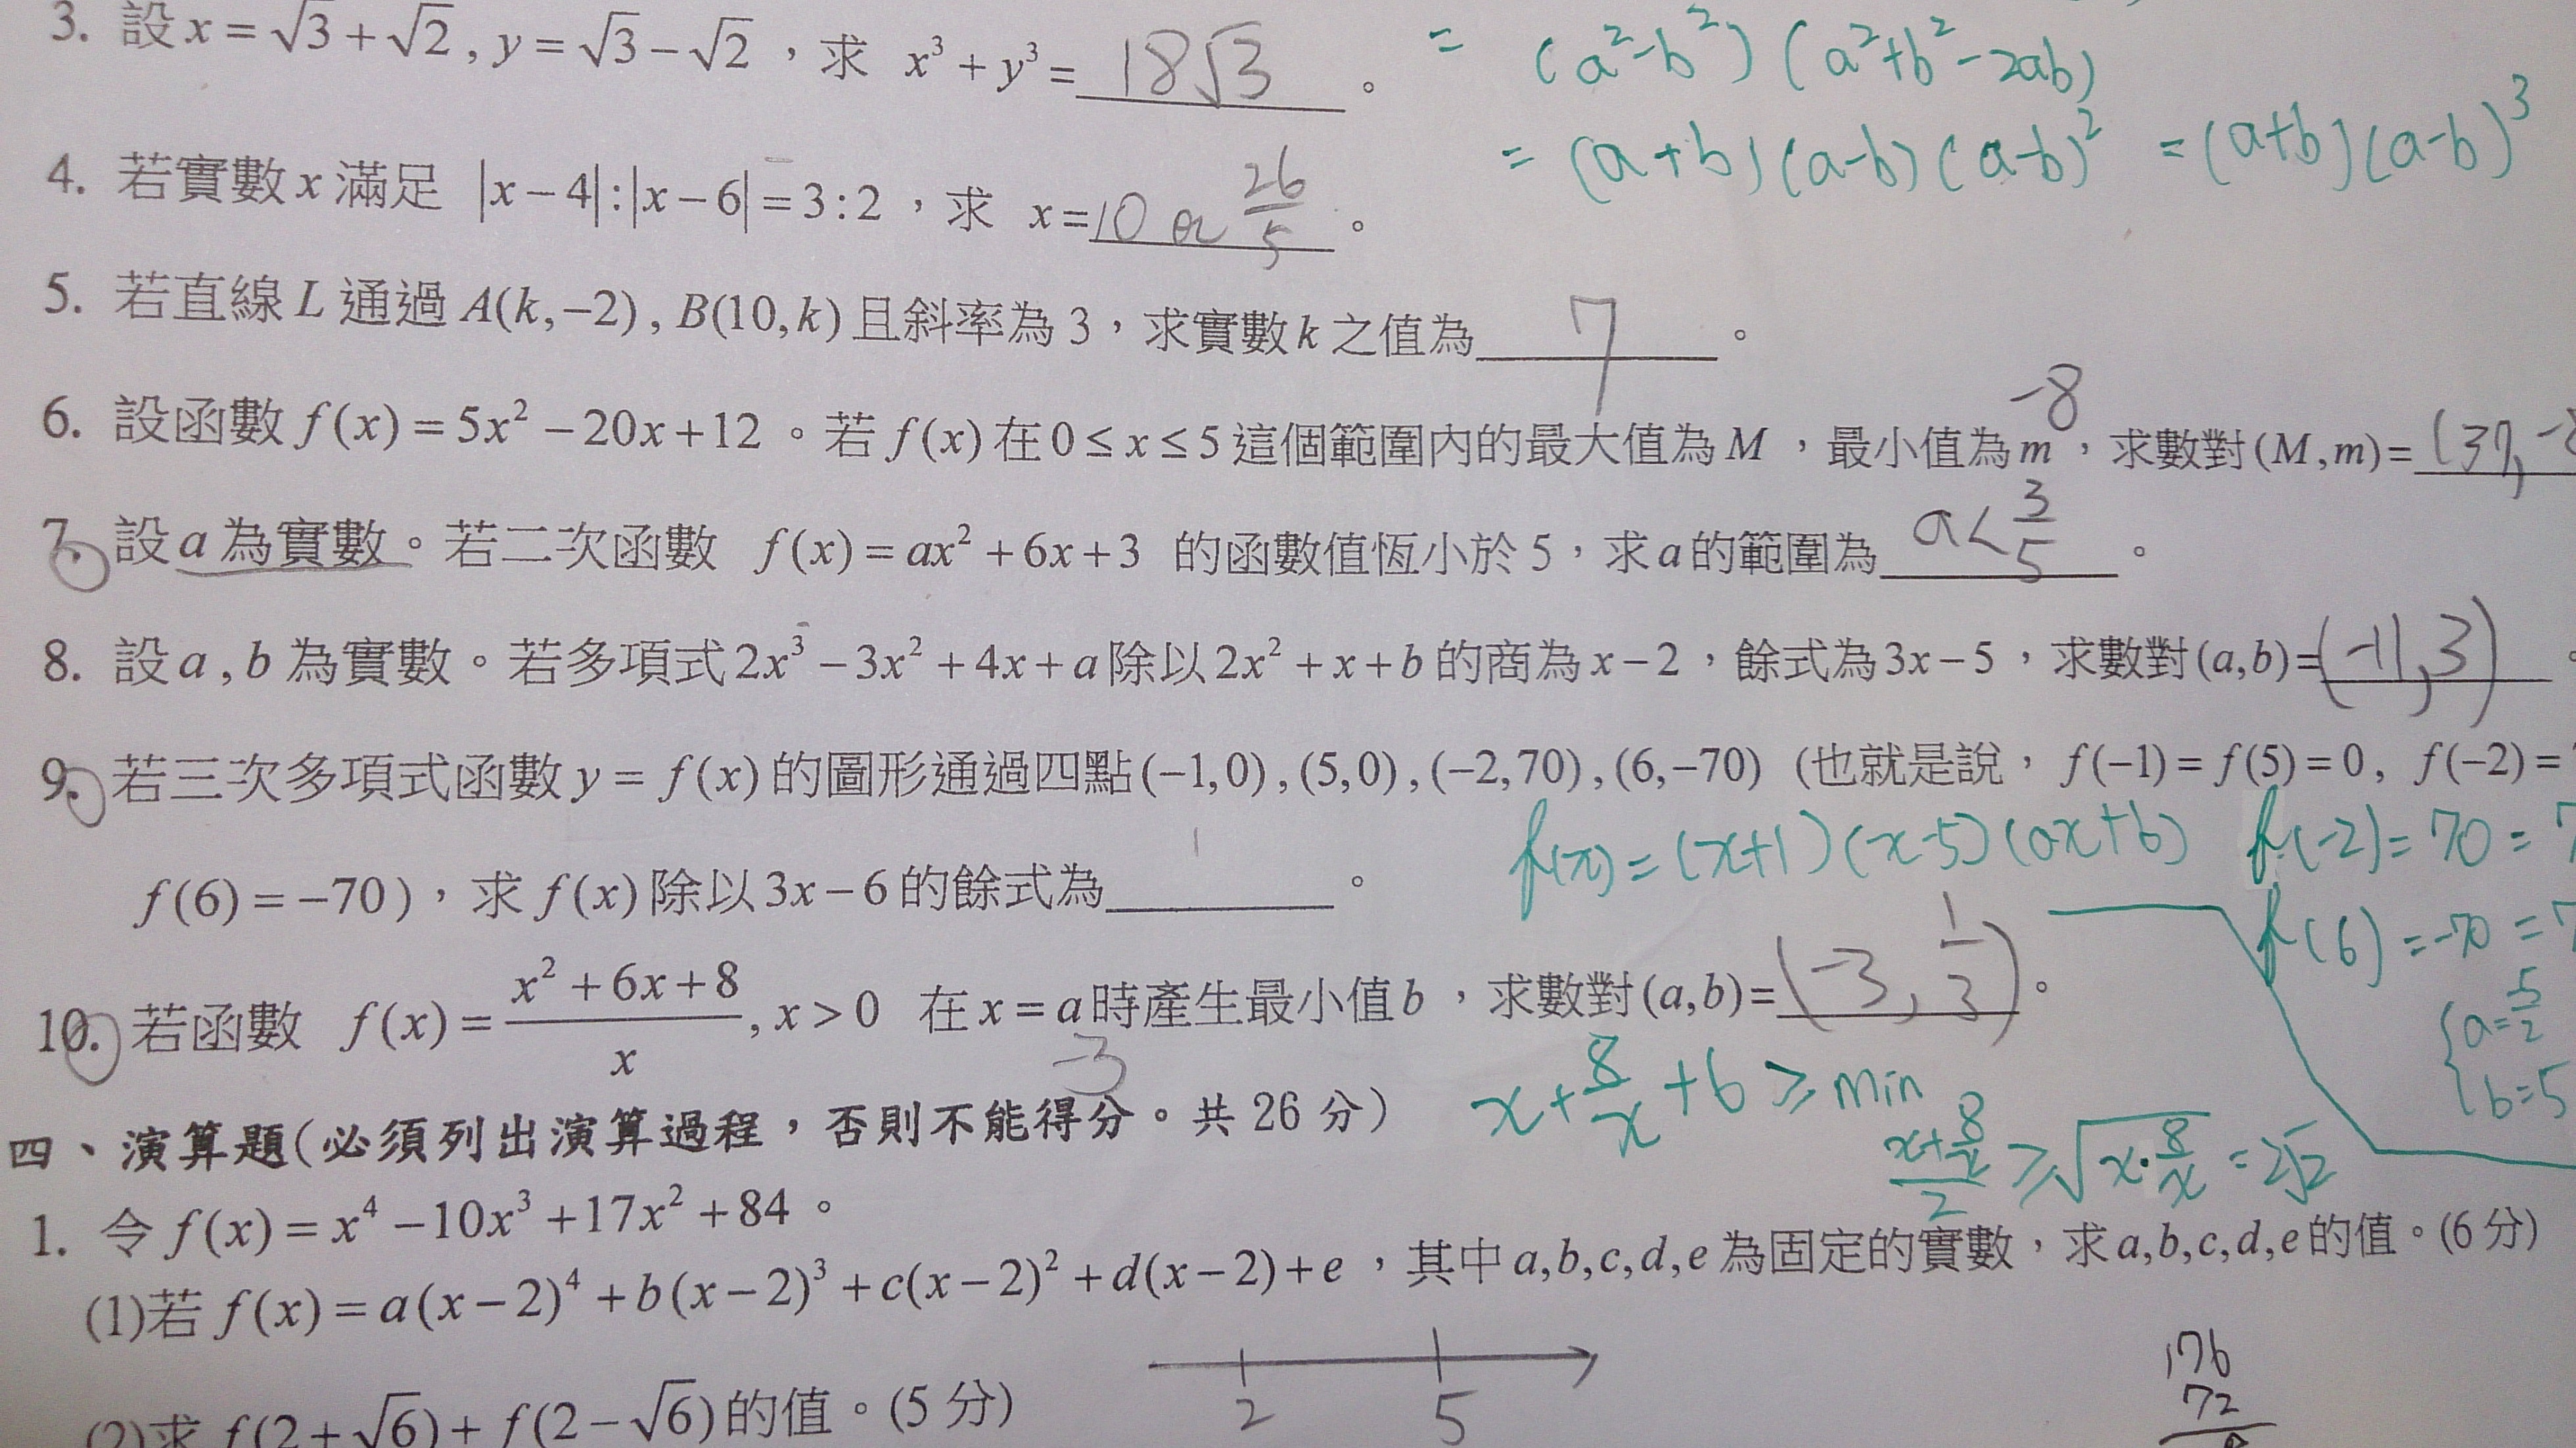 3. 設 x = √3 + √2 , y = √3 − √2 ，求 x³ + y³ = 18√3 。
= (a²-b²) (a²+b²-2ab)
= (a+b) (a-b) (a-b)² = (a+b) (a-b)³
4. 若實數 x 滿足 |x − 4| : |x − 6| = 3 : 2 ，求 x = 10 or 26/5 。
5. 若直線 L 通過 A(k, −2) , B(10, k) 且斜率為 3，求實數 k 之值為 7 。
-8
6. 設函數 f(x) = 5x² − 20x + 12 。若 f(x) 在 0 ≤ x ≤ 5 這個範圍內的最大值為 M ，最小值為 m ，求數對 (M, m) = (37, -8
7. 設 a 為實數。若二次函數 f(x) = ax² + 6x + 3 的函數值恆小於 5，求 a 的範圍為 a < 3/5 。
8. 設 a , b 為實數。若多項式 2x³ − 3x² + 4x + a 除以 2x² + x + b 的商為 x − 2 ，餘式為 3x − 5 ，求數對 (a, b) = (-11, 3) 。
9. 若三次多項式函數 y = f(x) 的圖形通過四點 (−1, 0) , (5, 0) , (−2, 70) , (6, −70) (也就是說， f(−1) = f(5) = 0 , f(−2) =
f(x) = (x+1) (x-5) (ax+b) f(-2) = 70 = 7
f(6) = −70 )，求 f(x) 除以 3x − 6 的餘式為 。
f(6) = -70 = 7
{a = -5/2
b = 5
10. 若函數 f(x) = (x² + 6x + 8)/x , x > 0 在 x = a 時產生最小值 b ，求數對 (a, b) = (-3, 1/3) 。
-3
x + 8/x + 6 ≥ min
(x + 8/x)/2 ≥ √(x · 8/x) = 2√2
四、演算題(必須列出演算過程，否則不能得分。共 26 分)
1. 令 f(x) = x⁴ − 10x³ + 17x² + 84 。
(1)若 f(x) = a(x − 2)⁴ + b(x − 2)³ + c(x − 2)² + d(x − 2) + e ，其中 a, b, c, d, e 為固定的實數，求 a, b, c, d, e 的值。(6 分)
2 5
176
72
(2)求 f(2 + √6) + f(2 − √6) 的值。(5 分)